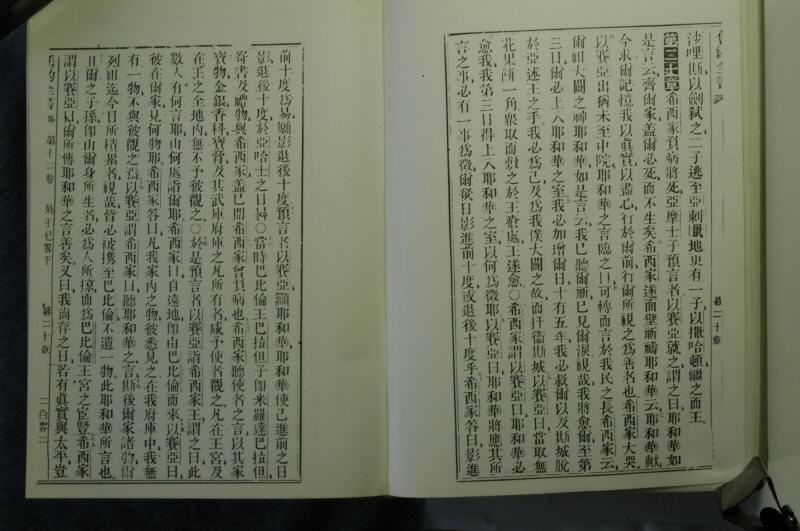 舊約全書
沙哩斯以劍弒之二子逃至亞剌臘地更有一子以撒哈頓繼之而王
第二十章希西家負病將死亞摩士子預言者以賽亞就之謂之曰耶和華如
是言云齊爾家蓋爾必死而不生矣希西家遂面壁祈禱耶和華云耶和華歟
今求爾記憶我以眞實以盡心行於爾前行爾所視之爲善者也希西家大哭
以賽亞出猶未至中院耶和華之言臨之曰可轉而言於我民之長希西家云
爾祖大闢之神耶和華如是言云我已聽爾祈已見爾淚視哉我將愈爾至第
三日爾必上入耶和華之室我必加增爾日十有五年我必救爾以及斯城脫
於亞述王之手我必爲己及爲我僕大闢之故而扞衞斯城以賽亞曰當取無
花果餅一角衆取而敷之於王瘡處王遂愈○希西家謂以賽亞曰耶和華必
愈我我第三日得上入耶和華之室以何爲徵耶以賽亞曰耶和華將應其所
言之事必有一事爲徵爾欲日影進前十度或退後十度乎希西家答曰影進
第二十章
前十度爲易願影退後十度預言者以賽亞籲耶和華耶和華使已進前之日
影退後十度於亞哈士之日晷○當時巴比倫王巴拉但子即米羅達巴拉但
寄書及禮物與希西家蓋已聞希西家曾負病也希西家聽使者之言以其家
寶物金銀香料寶膏及其武庫府庫之凡所有者咸予使者觀之凡在王宮及
在王之全地內無不予彼觀之○於是預言者以賽亞詣希西家王謂之曰此
數人有何言耶由何處詣爾耶希西家曰自遠地即由巴比倫而來以賽亞曰
彼在爾家見何物耶希西家答曰凡我家內之物彼悉見之在我府庫中我無
有一物不與彼觀之焉以賽亞謂希西家曰聽耶和華之言斯後爾家諸物爾
列祖迄今日所積累者視哉皆必被攜至巴比倫不遺一物此耶和華所言也
且爾之子孫即由爾身所生者必爲人所掠而爲巴比倫王宮之臣豎希西家
謂以賽亞曰爾所傳耶和華之言善矣又曰我尚存之日若有眞實與太平豈
舊約全書 第十二卷 列王紀畧下 第二十章 二百零二